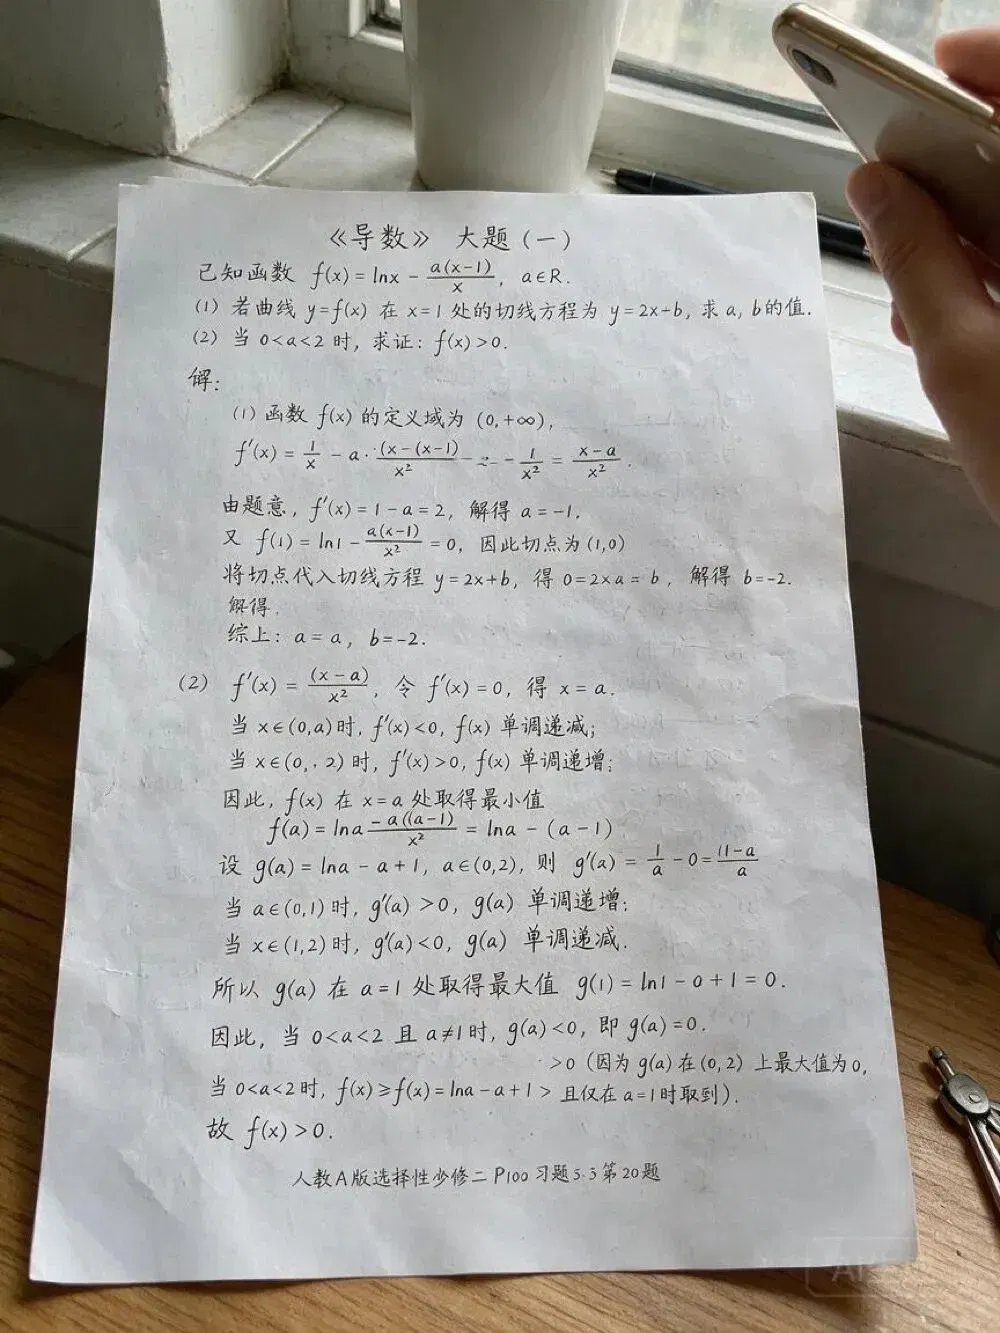 《导数》 大题（一）
已知函数 f(x) = lnx − a(x−1)/x, a∈R.
(1) 若曲线 y=f(x) 在 x=1 处的切线方程为 y=2x+b, 求 a, b的值.
(2) 当 0<a<2 时, 求证: f(x)>0.
解:
(1) 函数 f(x) 的定义域为 (0,+∞),
f′(x) = 1/x − a·(x−(x−1)/x² - - 1/x² = x−a/x².
由题意, f′(x)=1−a=2, 解得 a=−1,
又 f(1) = ln1 − a(x−1)/x² = 0, 因此切点为(1,0)
将切点代入切线方程 y=2x+b, 得 0=2×a=b, 解得 b=−2.
解得.
综上: a=a, b=−2.
(2) f′(x) = (x−a)/x², 令 f′(x)=0, 得 x=a.
当 x∈(0,a)时, f′(x)<0, f(x) 单调递减;
当 x∈(0,.2)时, f′(x)>0, f(x) 单调递增;
因此, f(x) 在 x=a 处取得最小值
f(a) = lna −a((a−1)/x² = lna − (a−1)
设 g(a) = lna − a+1, a∈(0,2), 则 g′(a) = 1/a − 0 = (1−a/a
当 a∈(0,1)时, g′(a) >0, g(a) 单调递增;
当 x∈(1,2)时, g′(a)<0, g(a) 单调递减.
所以 g(a) 在 a=1 处取得最大值 g(1) = ln1−0+1=0.
因此, 当 0<a<2 且 a≠1时, g(a)<0, 即 g(a)=0.
>0 (因为 g(a)在(0,2) 上最大值为0,
当 0<a<2时, f(x)≥f(x)=lna−a+1> 且仅在 a=1时取到).
故 f(x)>0.
人教A版选择性必修二 P100 习题5.3第20题